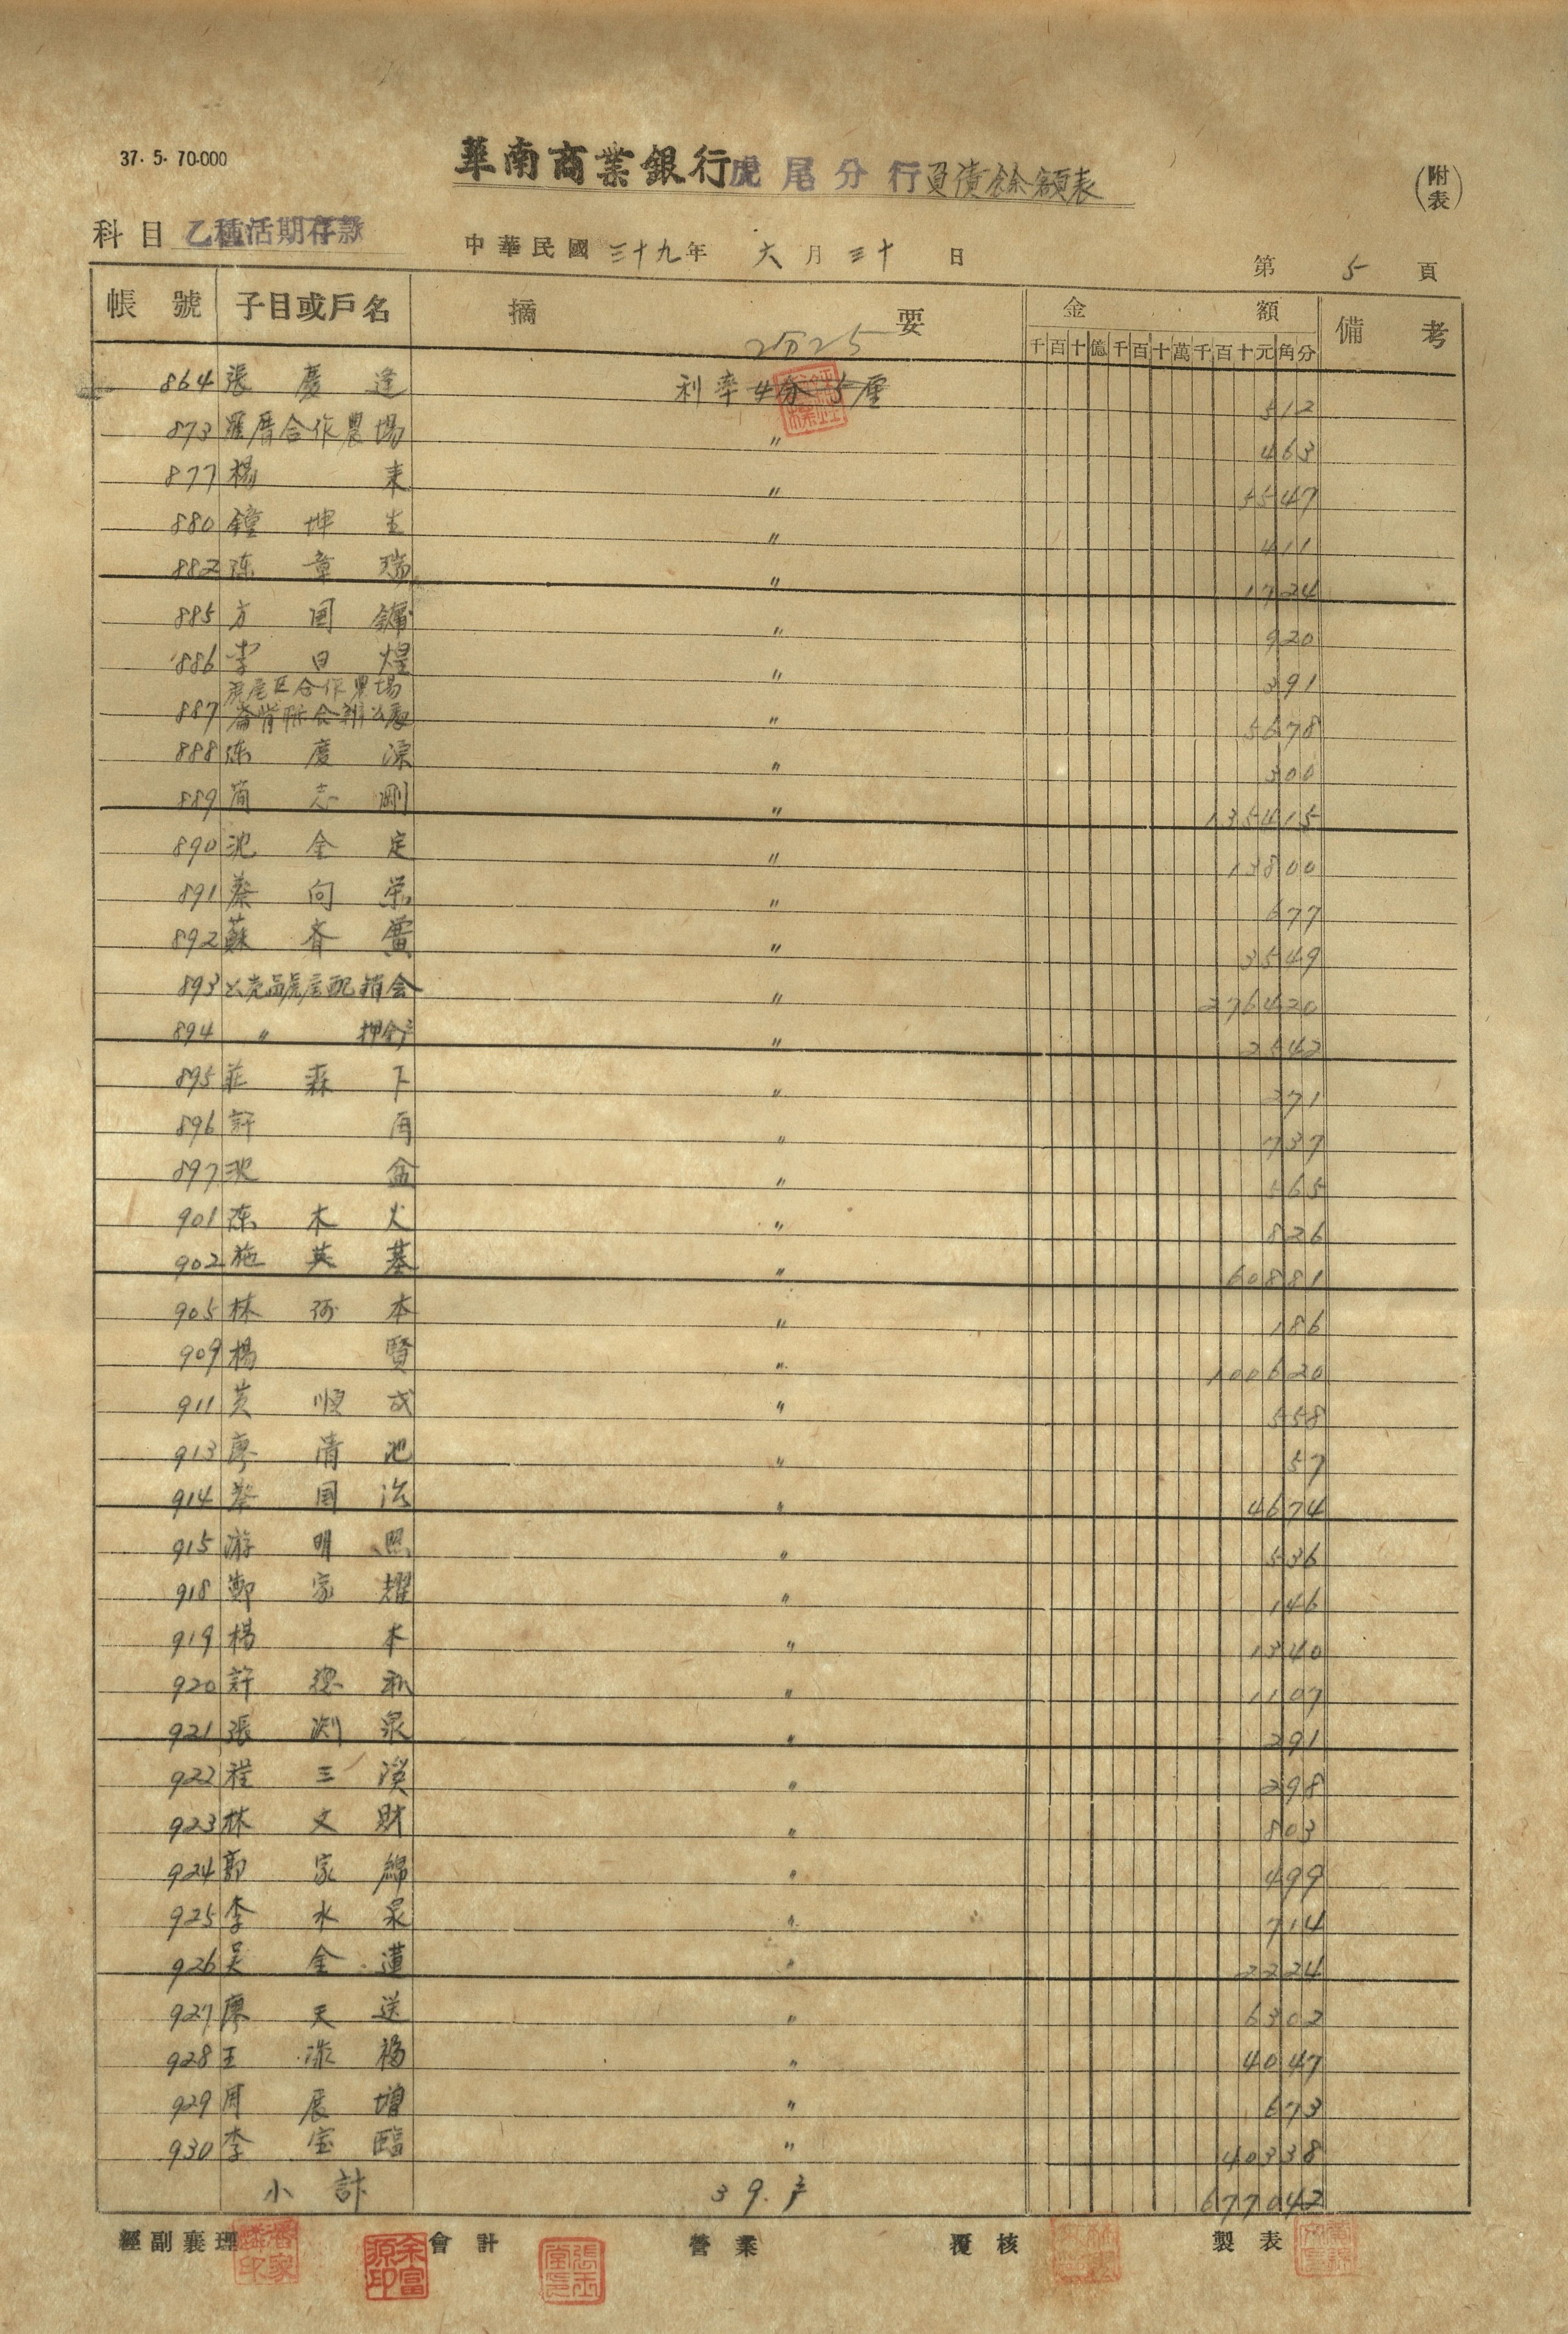 37. 5. 70.000
華南商業銀行虎尾分行負債餘額表
(附表)
科目 乙種活期存款
中華民國三十九年 六月三十日
第 5 頁
帳號 子目或戶名 摘要 金額 備考
千百十億千百十萬千百十元角分
2分25
864 張慶逢 利率4分5厘 512
873 羅厝合作農場 〃 463
877 楊來 〃 5547
880 鐘坤生 〃 411
882 陈章瑞 〃 1724
885 方国鏞 〃 920
886 李日煌 〃 391
虎尾区合作農場
887 崙背联合辦公處 〃 5678
888 陈慶源 〃 300
889 簡志剛 〃 135415
890 沈金定 〃 13800
891 蔡向荣 〃 677
892 蘇齐賓 〃 3549
893 公売品虎尾配銷会 〃 276420
894 〃 押金户 〃 2542
895 莊森下 〃 371
896 許再 〃 737
897 沈盆 〃 565
901 陈木火 〃 826
902 施英基 〃 60881
905 林河本 〃 186
909 楊賢 〃 100620
911 黄順成 〃 558
913 廖清池 〃 57
914 蔡国治 〃 4674
915 游明照 〃 536
918 鄭家耀 〃 146
919 楊木 〃 1340
920 許德和 〃 1107
921 張渊泉 〃 291
922 程三漢 〃 298
923 林文財 〃 803
924 郭家錦 〃 499
925 李水泉 〃 714
926 吴金蓮 〃 2224
927 廖天送 〃 6302
928 王添福 〃 4047
929 周辰增 〃 673
930 李宝臨 〃 40338
小計 39.户 677042
經副襄理 會計 營業 覆核 製表
余富源印